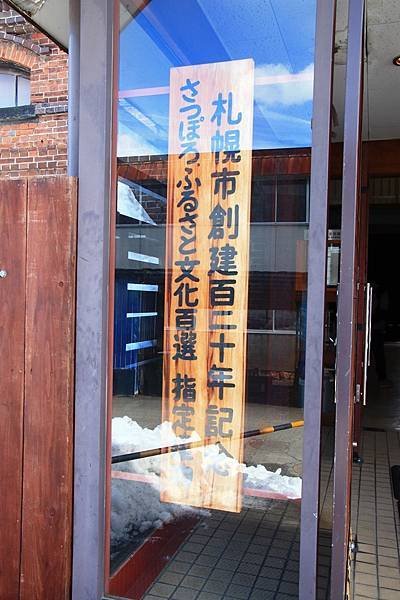 札幌市創建百二十年記念
さっぽろ・ふるさと文化百選 指定